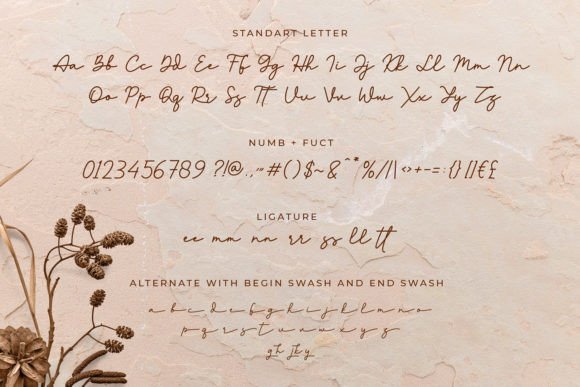 STANDART LETTER
Aa Bb Cc Dd Ee Ff Gg Hh Ii Jj Kk Ll Mm Nn
Oo Pp Qq Rr Ss Tt Uu Vu Ww Xx Yy Zz
NUMB + FUCT
0123456789 ?!@.,"'#()$~&^*%//|\<>+-=:{}[]€£
LIGATURE
ee mm nn rr ss ll tt
ALTERNATE WITH BEGIN SWASH AND END SWASH
a b c d e f g h i j k l m n o
p q r s t u v w x y z
gh jky